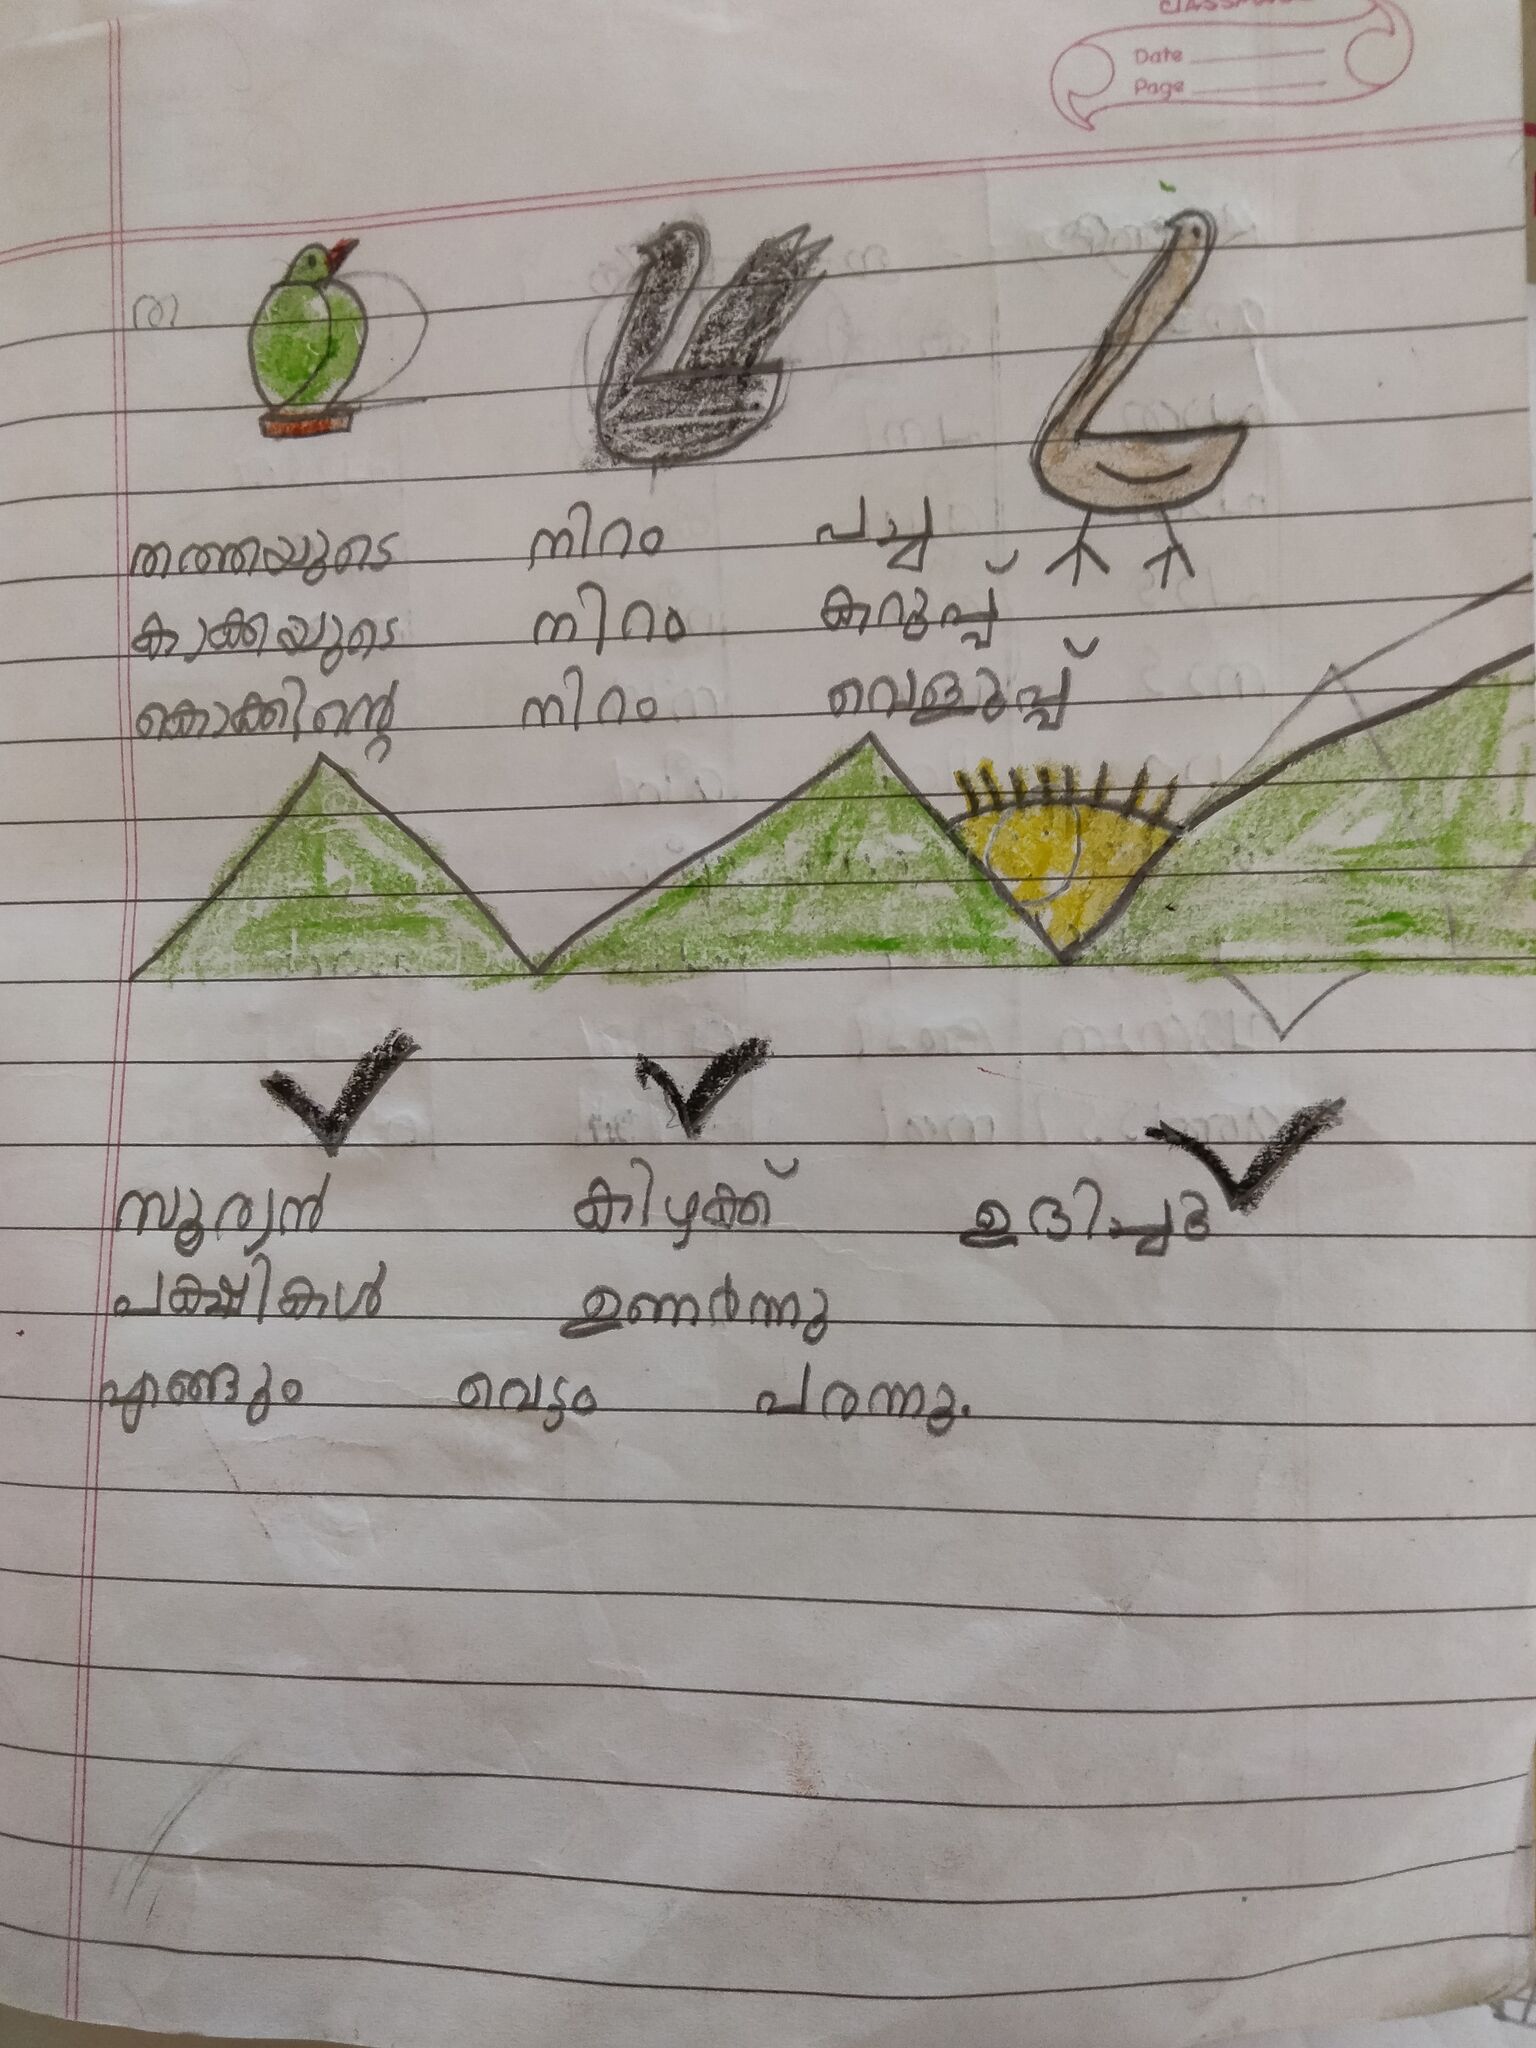 Date
Page
ത
തത്തയുടെ നിറം പച്ച
കാക്കയുടെ നിറം കറുപ്പ്
കൊക്കിന്റെ നിറം വെളുപ്പ്
സൂര്യൻ കിഴക്ക് ഉദിച്ചു
പക്ഷികൾ ഉണർന്നു
എങ്ങും വെട്ടം പരന്നു.